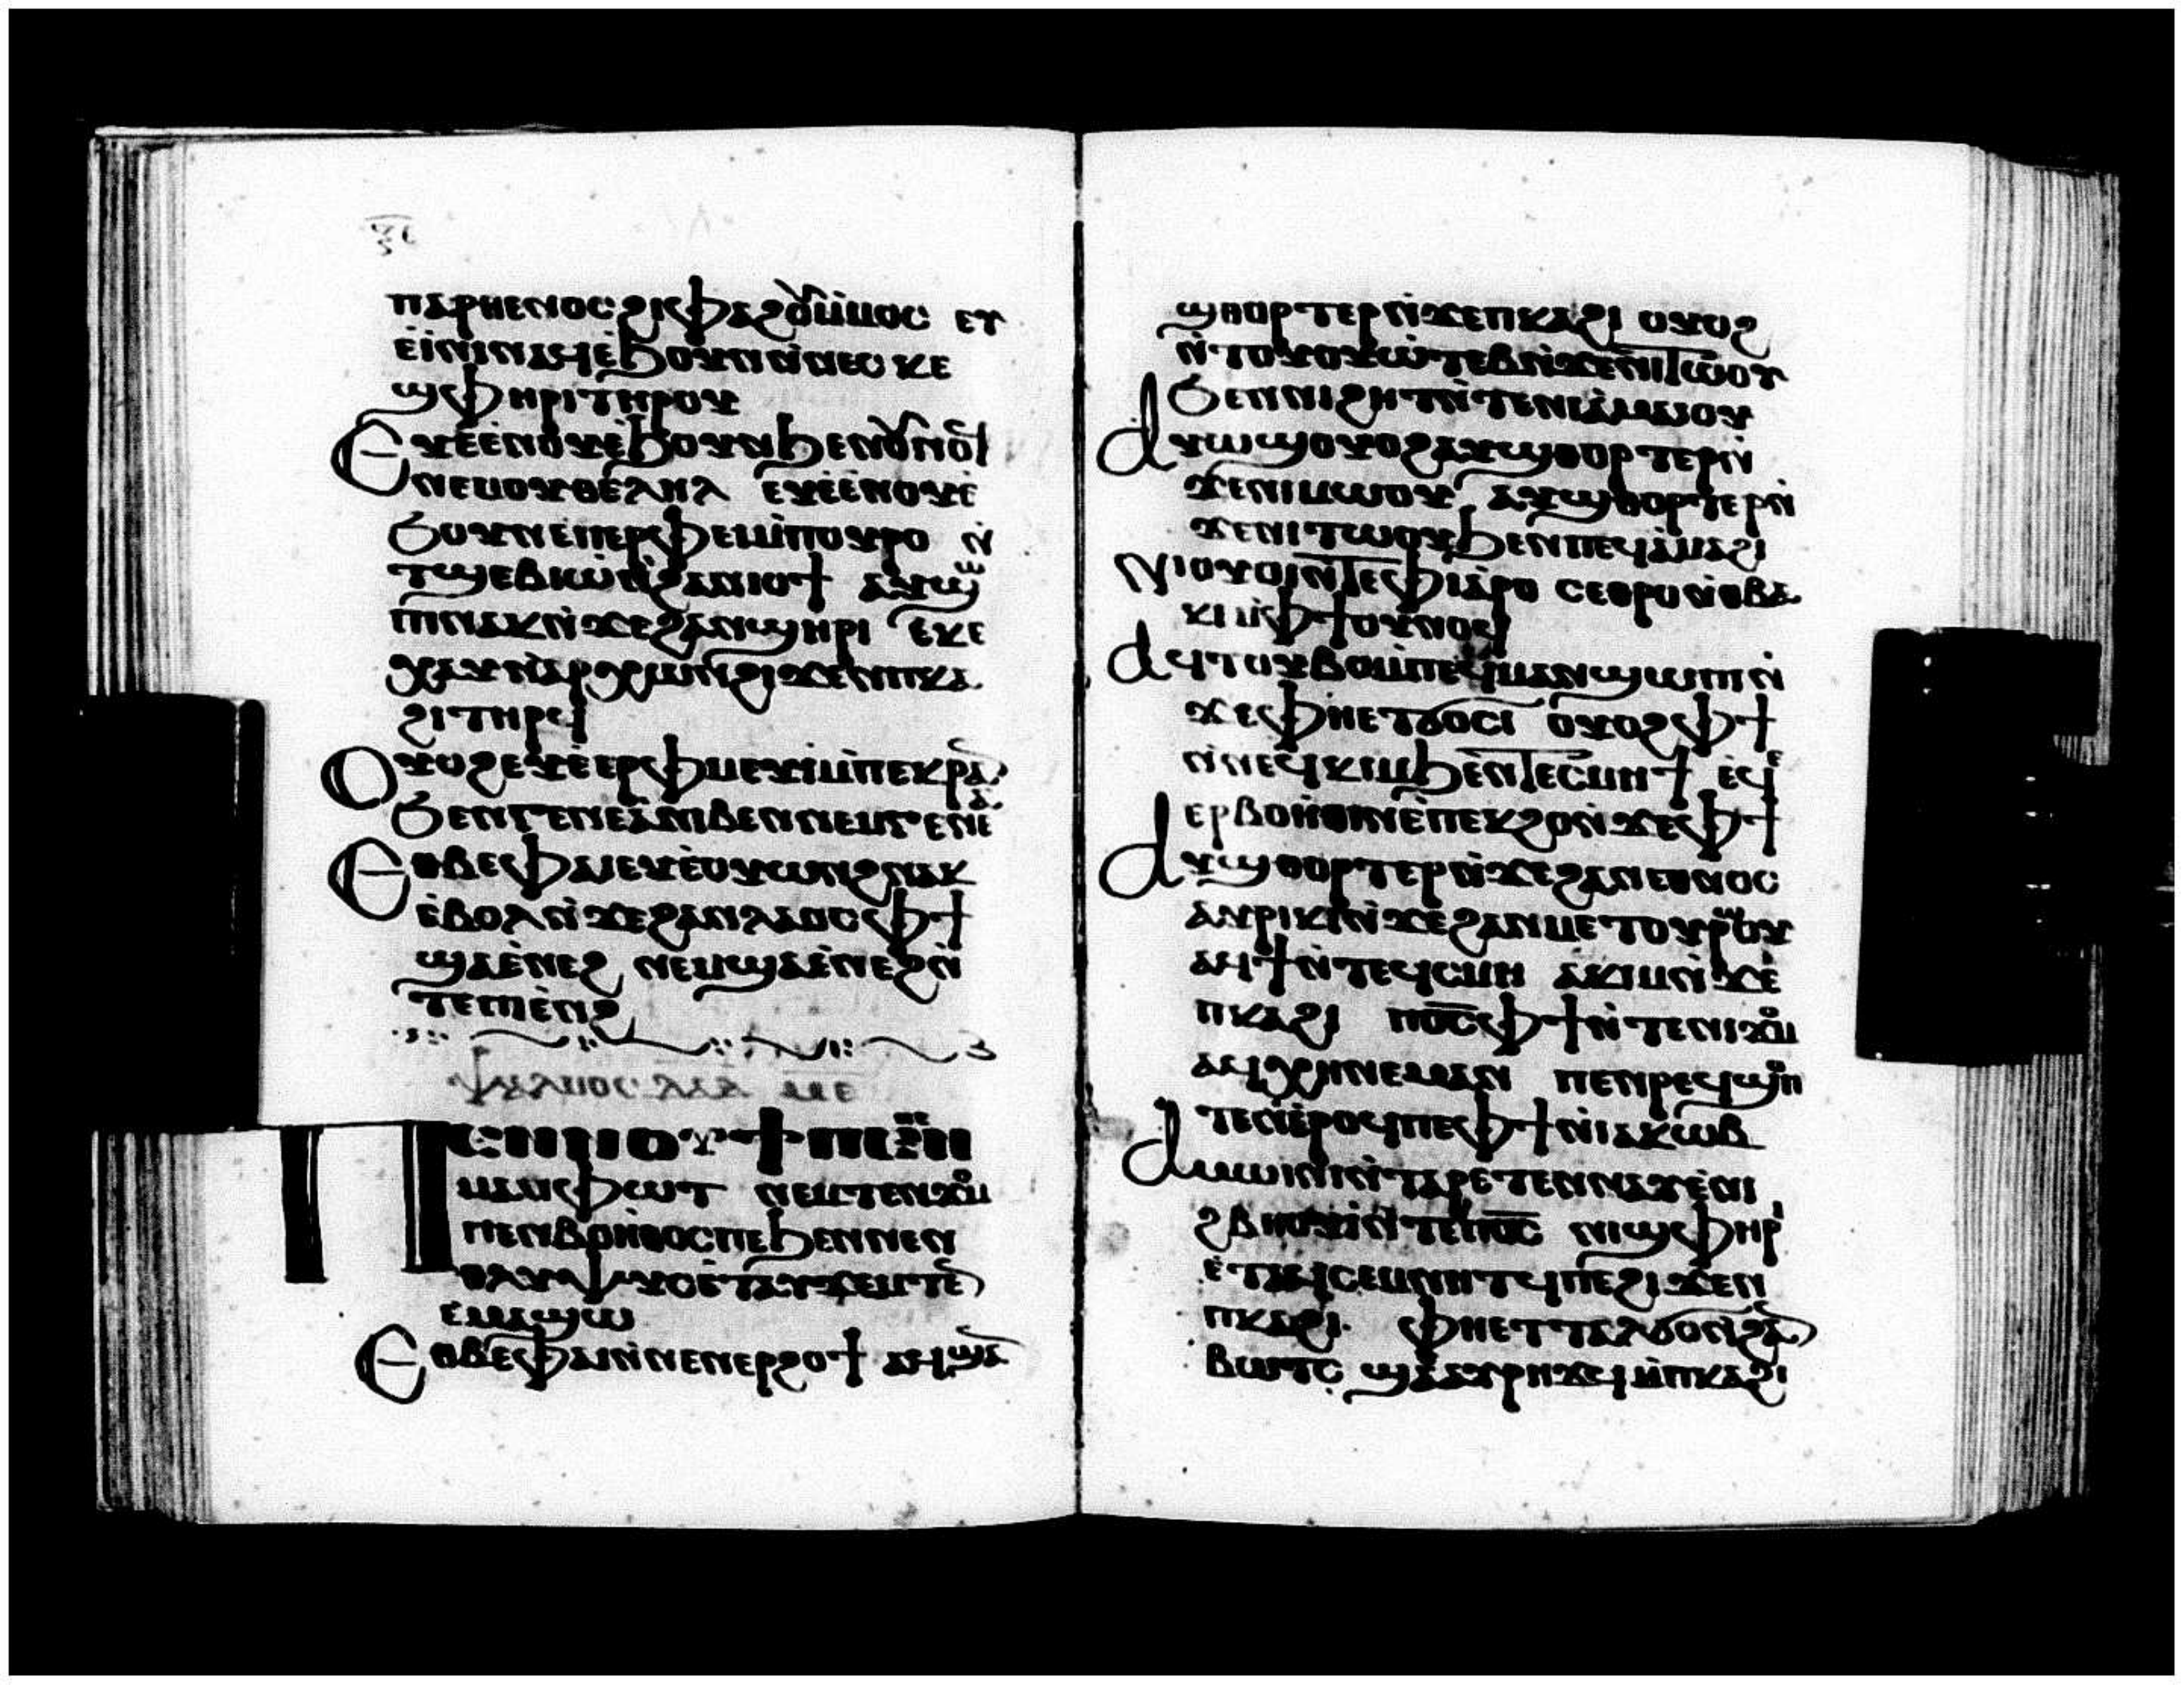 ⲡⲁⲣⲑⲉⲛⲟⲥ ϩⲓⲫⲁϩⲟⲩ ⲙ̀ⲙⲟⲥ ⲉⲩ
ⲉ̀ⲓ̀ⲛⲓ ⲛⲁϥ ⲉ̀ϧⲟⲩⲛ ⲛ̀ⲛⲉⲥⲕⲉ
ϣⲫⲏⲣⲓ ⲧⲏⲣⲟⲩ
Ⲉⲩⲉ̀ⲉⲛⲟⲩ ⲉ̀ϧⲟⲩⲛ ϧⲉⲛ ⲟⲩⲟⲩⲛⲟϥ
ⲛⲉⲙ ⲟⲩⲑⲉⲗⲏⲗ ⲉⲩⲉ̀ⲉⲛⲟⲩ ⲉ̀
ϧⲟⲩⲛ ⲉ̀ⲡⲉⲣⲫⲉⲓ ⲙ̀ⲡⲟⲩⲣⲟ ⲛ̀
ⲧϣⲉⲃⲓⲱ ⲛ̀ϩⲁⲛⲓⲟϯ ⲁⲩϣⲱ
ⲡⲓ ⲛⲁⲕ ⲛ̀ϫⲉ ϩⲁⲛϣⲏⲣⲓ ⲉⲕⲉ
ⲭⲁⲩ ⲛ̀ⲁⲣⲭⲱⲛ ϩⲓϫⲉⲛ ⲡⲕⲁ
ϩⲓ ⲧⲏⲣϥ
Ⲟⲩⲟϩ ⲉⲩⲉ̀ⲉⲣⲫⲙⲉⲩⲓ̀ ⲙ̀ⲡⲉⲕⲣⲁⲛ
ϧⲉⲛ ⲅⲉⲛⲉⲁ̀ ⲛⲓⲃⲉⲛ ⲛⲉⲙ ⲅⲉⲛⲉⲁ
Ⲉⲑⲃⲉ ⲫⲁⲓ ⲉⲩⲉ̀ⲟⲩⲱⲛϩ ⲛⲁⲕ
ⲉ̀ⲃⲟⲗ ⲛ̀ϫⲉ ϩⲁⲛⲗⲁⲟⲥ ⲫϯ
ϣⲁ ⲉ̀ⲛⲉϩ ⲛⲉⲙ ϣⲁ ⲉ̀ⲛⲉϩ ⲛ̀
ⲧⲉ ⲡⲓⲉ̀ⲛⲉϩ
ⲯⲁⲗⲙⲟⲥ ⲇⲁⲇ ⲙⲉ
Ⲡⲉⲛⲛⲟⲩϯ ⲡⲉ ⲡⲉⲛ
ⲙⲁⲙ̀ⲫⲱⲧ ⲛⲉⲙ ⲧⲉⲛϫⲟⲙ
ⲡⲉⲛⲃⲟⲏ̀ⲑⲟⲥ ⲡⲉ ϧⲉⲛ ⲛⲉⲛ
ⲑⲗⲩⲯⲩⲥ ⲉ̀ⲧⲁⲩϫⲉⲙⲧⲉⲛ
ⲉ̀ⲙⲁϣⲱ
Ⲉⲑⲃⲉ ⲫⲁⲓ ⲛ̀ⲛⲉⲛⲉⲣϩⲟϯ ⲁϥϣⲁⲛ
ϣⲑⲟⲣⲧⲉⲣ ⲛ̀ϫⲉ ⲡⲕⲁϩⲓ ⲟⲩⲟϩ
ⲛ̀ⲧⲟⲩⲟⲩⲱ̀ⲧⲉⲃ ⲛ̀ϫⲉ ⲛⲓⲧⲱⲟⲩ
ϧⲉⲛ ⲛⲓϩⲏⲧ ⲛ̀ⲧⲉ ⲛⲓⲁ̀ⲙⲁⲓⲟⲩ
Ⲁⲩⲱϣ ⲟⲩⲟϩ ⲁⲩϣⲑⲟⲣⲧⲉⲣ ⲛ̀
ϫⲉ ⲛⲓⲙⲱⲟⲩ ⲁⲩϣⲑⲟⲣⲧⲉⲣ ⲛ̀
ϫⲉ ⲛⲓⲧⲱⲟⲩ ϧⲉⲛ ⲡⲉϥⲁ̀ⲙⲁϩⲓ
Ⲛⲓⲟⲩⲟⲓ ⲛ̀ⲧⲉ ⲫⲓⲁⲣⲟ ⲥⲉⲑⲣⲟ ⲛ̀ⲑⲃⲁ
ⲕⲓ ⲙ̀ⲫϯ ⲟⲩⲛⲟϥ
Ⲁϥⲧⲟⲩⲃⲟ ⲙ̀ⲡⲉϥⲙⲁⲛϣⲱⲡⲓ ⲛ̀
ϫⲉ ⲫⲏⲉⲧϭⲟⲥⲓ ⲟⲩⲟϩ ⲫϯ
ⲛ̀ⲛⲉϥⲕⲓⲙ ϧⲉⲛ ⲧⲉⲥⲙⲏϯ ⲉϥⲉ̀
ⲉⲣⲃⲟⲏ̀ⲑⲓⲛ ⲉ̀ⲡⲉⲕϩⲟ ⲛ̀ϫⲉ ⲫϯ
Ⲁⲩϣⲑⲟⲣⲧⲉⲣ ⲛ̀ϫⲉ ϩⲁⲛⲉⲑⲛⲟⲥ
ⲁⲩⲣⲓⲕⲓ ⲛ̀ϫⲉ ϩⲁⲛⲙⲉⲧⲟⲩⲣⲱⲟⲩ
ⲁϥϯ ⲛ̀ⲧⲉϥⲥⲙⲏ ⲁϥⲕⲓⲙ ⲛ̀ϫⲉ
ⲡⲕⲁϩⲓ ⲡⲟ̅ⲥ̅ ⲫϯ ⲛ̀ⲧⲉ ⲛⲓϫⲟⲙ
ⲁϥⲭⲏ ⲛⲉⲙⲁⲛ ⲡⲉⲛⲣⲉϥϣⲟⲡ
ⲧⲉⲛ ⲉ̀ⲣⲟϥ ⲡⲉ ⲫϯ ⲛ̀ⲓⲁⲕⲱⲃ
Ⲁⲙⲱⲓⲛⲓ ⲛ̀ⲧⲁⲣⲉⲧⲉⲛⲛⲁⲩ ⲉ̀ⲛⲓ
ϩⲃⲏⲟⲩⲓ̀ ⲛ̀ⲧⲉ ⲡⲟ̅ⲥ̅ ⲛⲓϣⲫⲏⲣⲓ
ⲉ̀ⲧⲁϥⲥⲉⲙⲛⲏⲧϥ ⲡⲉ ϩⲓϫⲉⲛ
ⲡⲕⲁϩⲓ ⲫⲏⲉⲧⲧⲁⲗϭⲟ ⲛ̀ϩⲁⲛ
ⲃⲱⲧⲥ ϣⲁ ⲁⲩⲣⲏϫϥ ⲙ̀ⲡⲕⲁϩⲓ